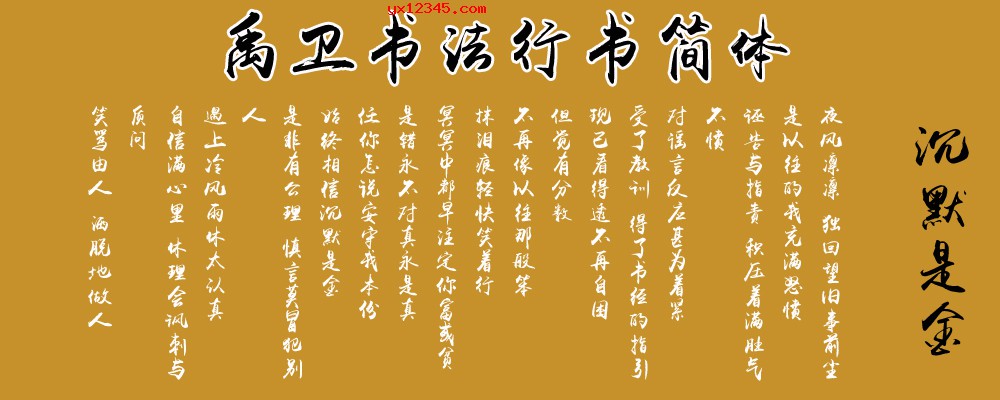 yx12345.com
禹卫书法行书简体
沉默是金
夜风凛凛 独回望旧事前尘
是以往的我充满怒愤
诬告与指责 积压着满肚气
不愤
对谣言反应甚为着紧
受了教训 得了书经的指引
现已看得透不再自困
但觉有分数
不再像以往那般笨
抹泪痕轻快笑着行
冥冥中都早注定你富或贫
是错永不对真永是真
任你怎说安守我本份
始终相信沉默是金
是非有公理 慎言莫冒犯别
人
遇上冷风雨休太认真
自信满心里 休理会讽刺与
质问
笑骂由人 洒脱地做人